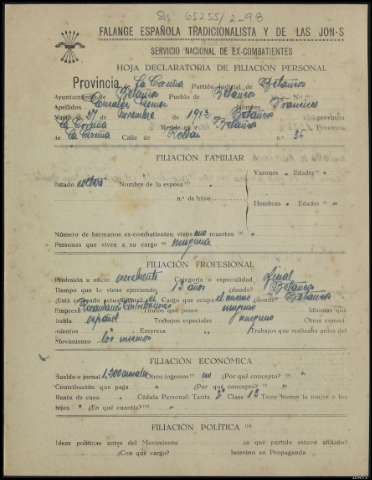 Sig 65255/2-98
FALANGE ESPAÑOLA TRADICIONALISTA Y DE LAS JON-S
SERVICIO NACIONAL DE EX-COMBATIENTES
HOJA DECLARATORIA DE FILIACIÓN PERSONAL
Provincia La Coruña Partido Judicial de Betanzos
Ayuntamiento de Betanzos Pueblo de Betanzos
Apellidos Nombre Francisco
Nació el 27 noviembre de 1913 Betanzos provincia
La Coruña Betanzos Provincia
La Coruña Calle de n.º 35
FILIACIÓN FAMILIAR
Estado soltero Nombre de la esposa " Varones - Edades "
n.º de hijos Hembras - Edades "
Número de hermanos ex-combatientes vivos muertos "
Personas que viven a su cargo " ninguna
FILIACIÓN PROFESIONAL
Profesión u oficio escribiente Categoría o especialidad
Tiempo que lo viene ejerciendo años ¿dónde? Betanzos
¿Está colocado actualmente? si Cargo que ocupa el mismo ¿dónde? Betanzos
Empresa Recaudación Contribuciones ninguno Idiomas que
habla español Trabajos especiales ninguno Otros conoci-
mientos " Empresa " Trabajos que realizaba antes del
Movimiento los mismos
FILIACIÓN ECONÓMICA
Sueldo o jornal Otros ingresos no ¿Por qué concepto? "
Contribución que paga " ¿Por qué concepto? "
Renta de casa " Cédula Personal Tarifa Clase 12 Tiene bienes la mujer o los
hijos " ¿En qué cuantía? "
FILIACIÓN POLÍTICA
Ideas políticas antes del Movimiento " ¿a qué partido estuvo afiliado?
¿Con qué cargo? Intervino en Propaganda